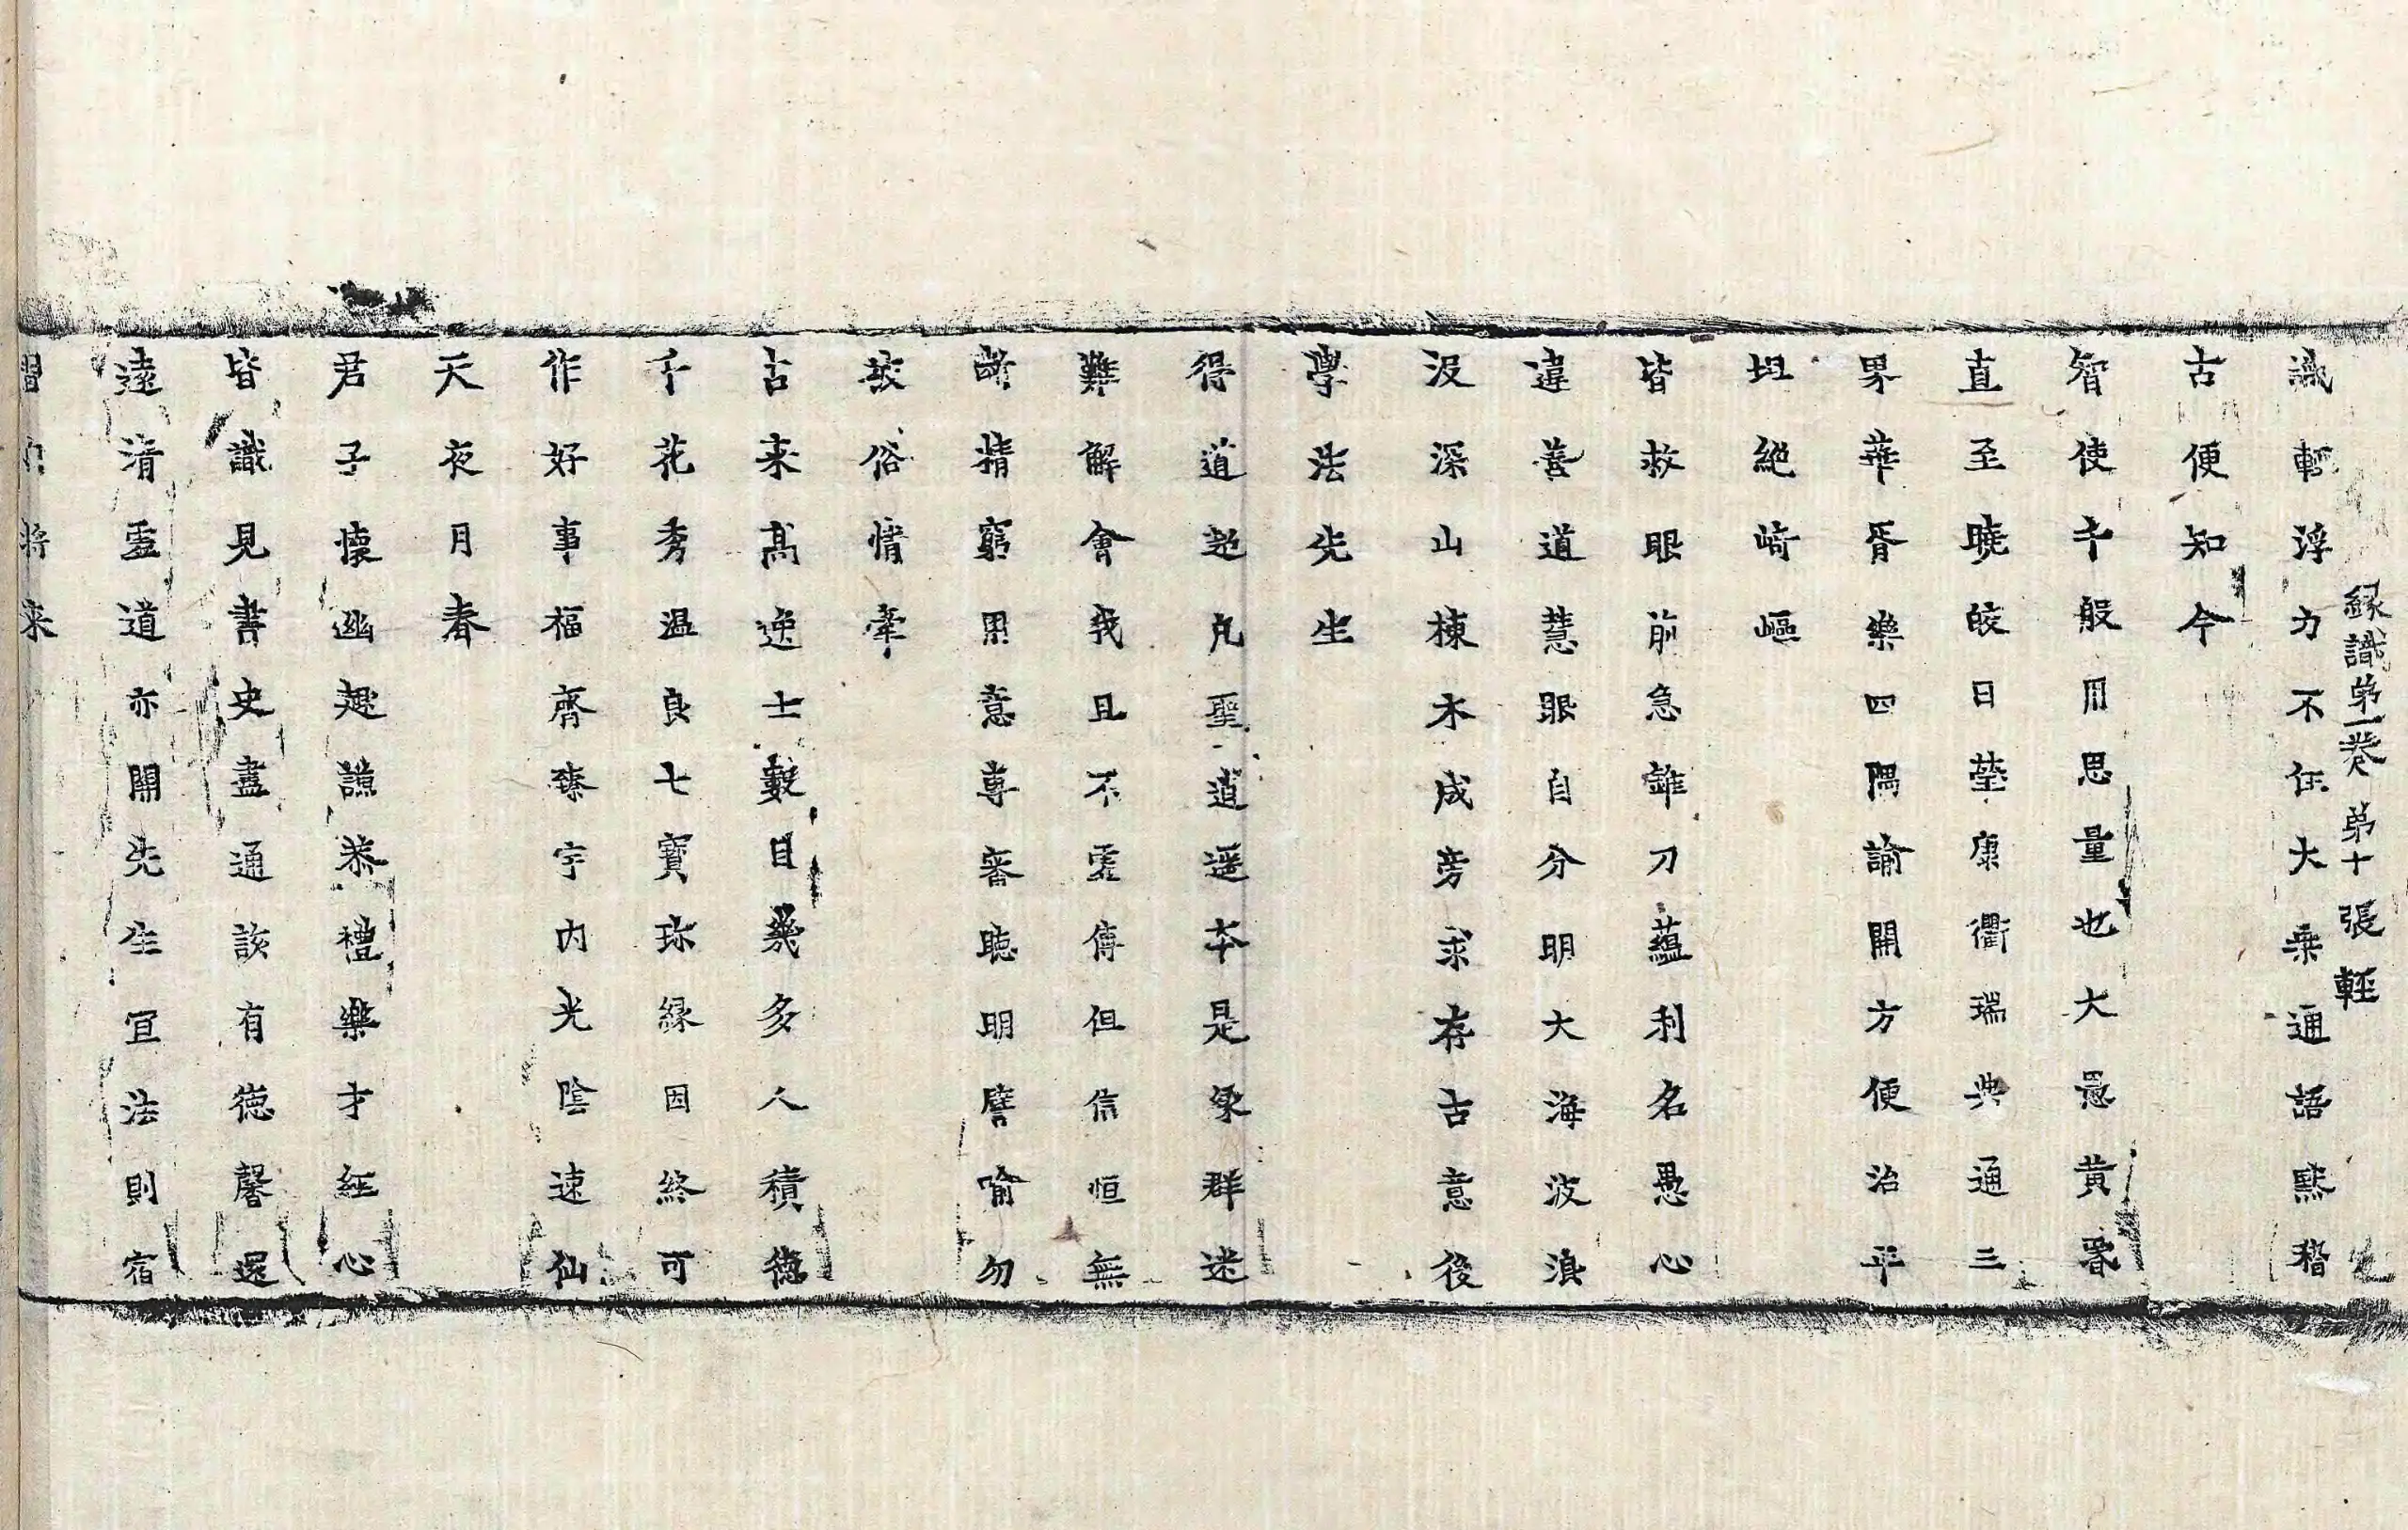 緣識第一卷　第十張　輕
識輕浮力不任大乘通語默稽
古便知今
智使千般用思量也大愚黃昏
直至曉皎日瑩康衢瑞典通三
界華胥樂四隅諭開方便治平
坦絕崎嶇
皆救眼前急錐刀蘊利名愚心
違善道慧眼自分明大海波濤
沒深山棟木成旁求存古意後
學法先生
得道超凡聖逍遥本是梁群迷
難解會我且不虛傳但信恒無
諸精窮用意專審聽明譬喻勿
被俗情牽
古来高逸士數目幾多人積德
千花秀温良七寶珎緣因終可
作好事福齊臻宇内光陰速仙
天夜月春
君子懷幽趣謙恭禮樂才經心
皆識見書史盡通該有德馨還
遠清虛道亦開先生宣法則宿
習 將来